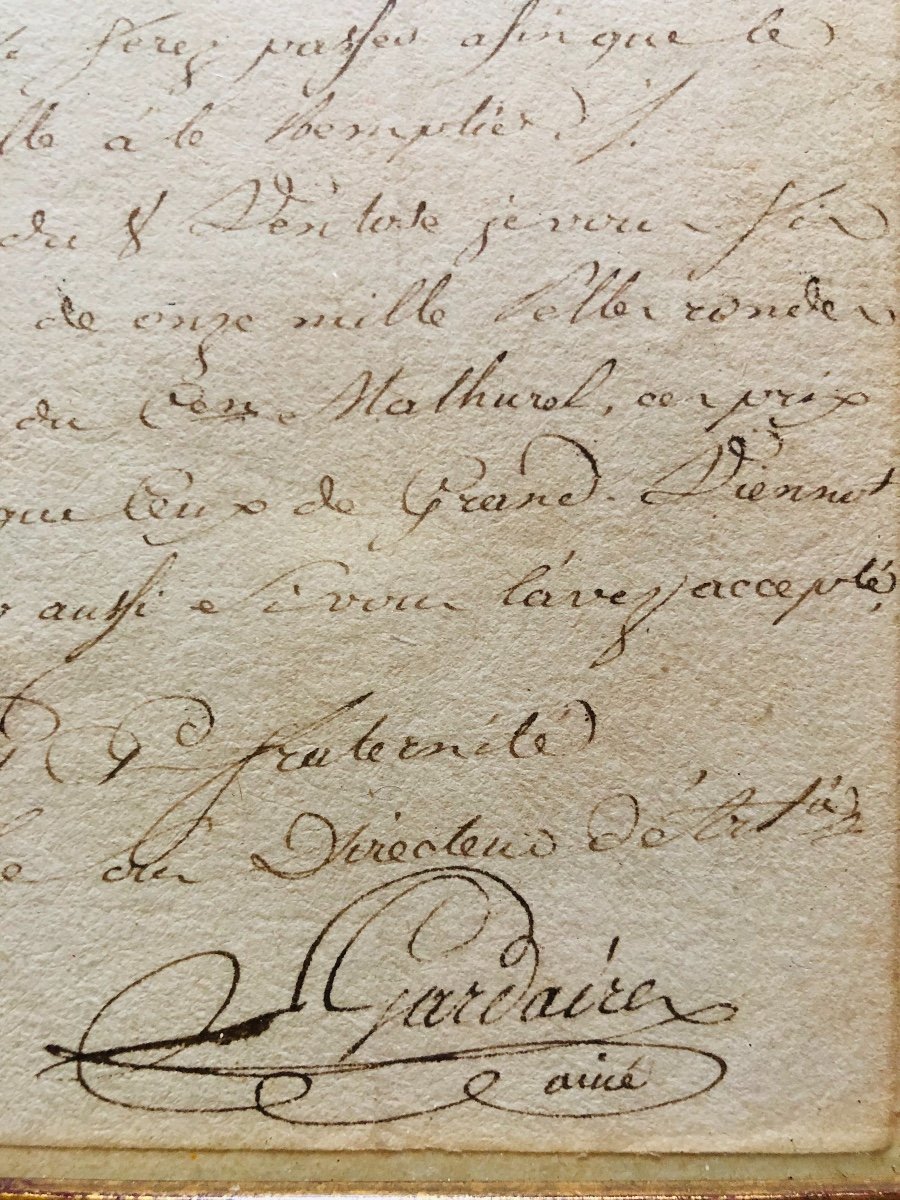 ferez passer afin que le
lle à le Remplier ./.
du 8 Ventose je vous fis
de onze mille pelles rondes
du Cen Mathurel, ces prix
que Ceux de Grand. Viennot
aussi si vous l'avez accepté,
fraternité
le du Directeur D'Art
Gardaire
ainé